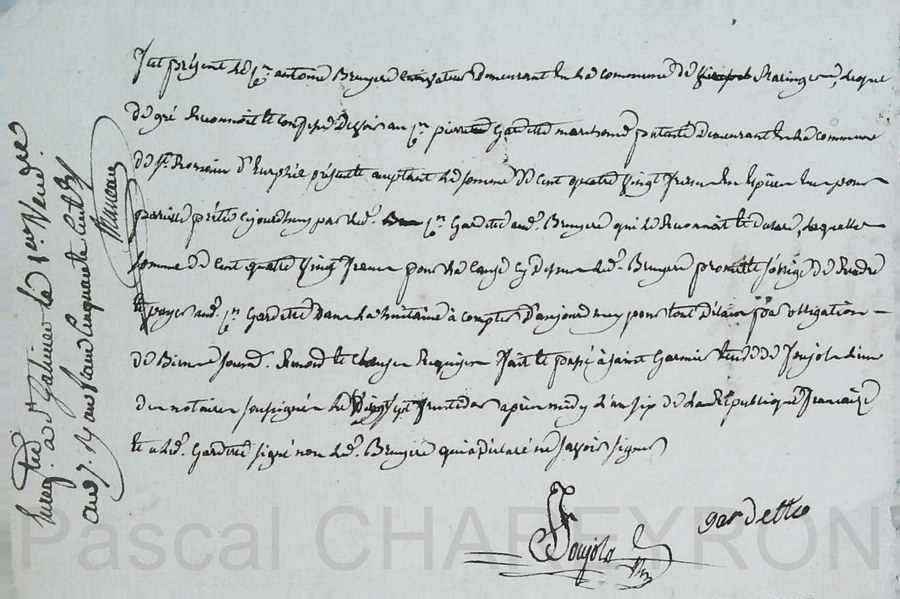 fut présent le C.en antoine Bruyere cultivateur demeurant en la commune de Maringes, lequel
de gré Reconnoit et confesse Devoir au C.en pierre Gardette marchand patenté demeurant en la commune
de S.t Romain d'Eurphée présent acceptant la somme de Cent quatre Vingt francs En Espèces Eue pour
pareille prêtée cejourdhuy par led. C.en Gardette aud. Bruyere qui le Reconnoit et declare, laquelle
somme de Cent quatre Vingt francs pour la cause cy dessus led. Bruyere promet et s'oblige de Rendre
et payer aud. C.en Gardette dans la huitaine à compter D'aujourd'huy pour tout délai, par obligation
de Biens soumis. Renond. et clauses Requises. fait et passé à saint Garmier Etude de Foujols l'un
des notaires soussignés le Vingt sept fructidor après midy l'an six de la République française
et a led. Gardette signé non led. Bruyere qui a déclaré ne savoir signer
gardette
Foujols
Enregistré à S.t Galmier le 1.er Vend.re
an 7. Reçu un franc cinquante cent.s